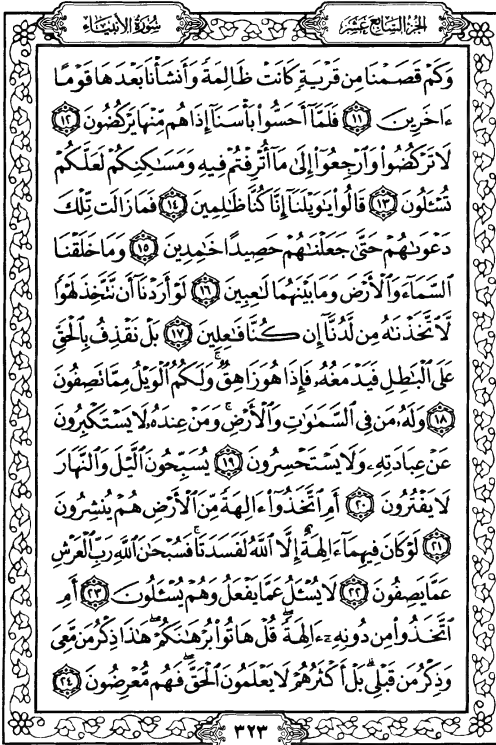 سُورَةُ الأَنبِيَاء
الجزء السابع عشر
وَكَمْ قَصَمْنَا مِن قَرْيَةٍ كَانَتْ ظَالِمَةً وَأَنشَأْنَا بَعْدَهَا قَوْمًا
ءَاخَرِينَ ١١ فَلَمَّآ أَحَسُّوا۟ بَأْسَنَآ إِذَا هُم مِّنْهَا يَرْكُضُونَ ١٢
لَا تَرْكُضُوا۟ وَٱرْجِعُوٓا۟ إِلَىٰ مَآ أُتْرِفْتُمْ فِيهِ وَمَسَـٰكِنِكُمْ لَعَلَّكُمْ
تُسْـَٔلُونَ ١٣ قَالُوا۟ يَـٰوَيْلَنَآ إِنَّا كُنَّا ظَـٰلِمِينَ ١٤ فَمَا زَالَت تِّلْكَ
دَعْوَىٰهُمْ حَتَّىٰ جَعَلْنَـٰهُمْ حَصِيدًا خَـٰمِدِينَ ١٥ وَمَا خَلَقْنَا
ٱلسَّمَآءَ وَٱلْأَرْضَ وَمَا بَيْنَهُمَا لَـٰعِبِينَ ١٦ لَوْ أَرَدْنَآ أَن نَّتَّخِذَ لَهْوًا
لَّٱتَّخَذْنَـٰهُ مِن لَّدُنَّآ إِن كُنَّا فَـٰعِلِينَ ١٧ بَلْ نَقْذِفُ بِٱلْحَقِّ
عَلَى ٱلْبَـٰطِلِ فَيَدْمَغُهُۥ فَإِذَا هُوَ زَاهِقٌ ۚ وَلَكُمُ ٱلْوَيْلُ مِمَّا تَصِفُونَ
١٨ وَلَهُۥ مَن فِى ٱلسَّمَـٰوَٰتِ وَٱلْأَرْضِ ۚ وَمَنْ عِندَهُۥ لَا يَسْتَكْبِرُونَ
عَنْ عِبَادَتِهِۦ وَلَا يَسْتَحْسِرُونَ ١٩ يُسَبِّحُونَ ٱلَّيْلَ وَٱلنَّهَارَ
لَا يَفْتُرُونَ ٢٠ أَمِ ٱتَّخَذُوٓا۟ ءَالِهَةً مِّنَ ٱلْأَرْضِ هُمْ يُنشِرُونَ
٢١ لَوْ كَانَ فِيهِمَآ ءَالِهَةٌ إِلَّا ٱللَّهُ لَفَسَدَتَا ۚ فَسُبْحَـٰنَ ٱللَّهِ رَبِّ ٱلْعَرْشِ
عَمَّا يَصِفُونَ ٢٢ لَا يُسْـَٔلُ عَمَّا يَفْعَلُ وَهُمْ يُسْـَٔلُونَ ٢٣ أَمِ
ٱتَّخَذُوا۟ مِن دُونِهِۦٓ ءَالِهَةً ۖ قُلْ هَاتُوا۟ بُرْهَـٰنَكُمْ ۖ هَـٰذَا ذِكْرُ مَن مَّعِىَ
وَذِكْرُ مَن قَبْلِى ۗ بَلْ أَكْثَرُهُمْ لَا يَعْلَمُونَ ٱلْحَقَّ ۖ فَهُم مُّعْرِضُونَ ٢٤
٣٢٣